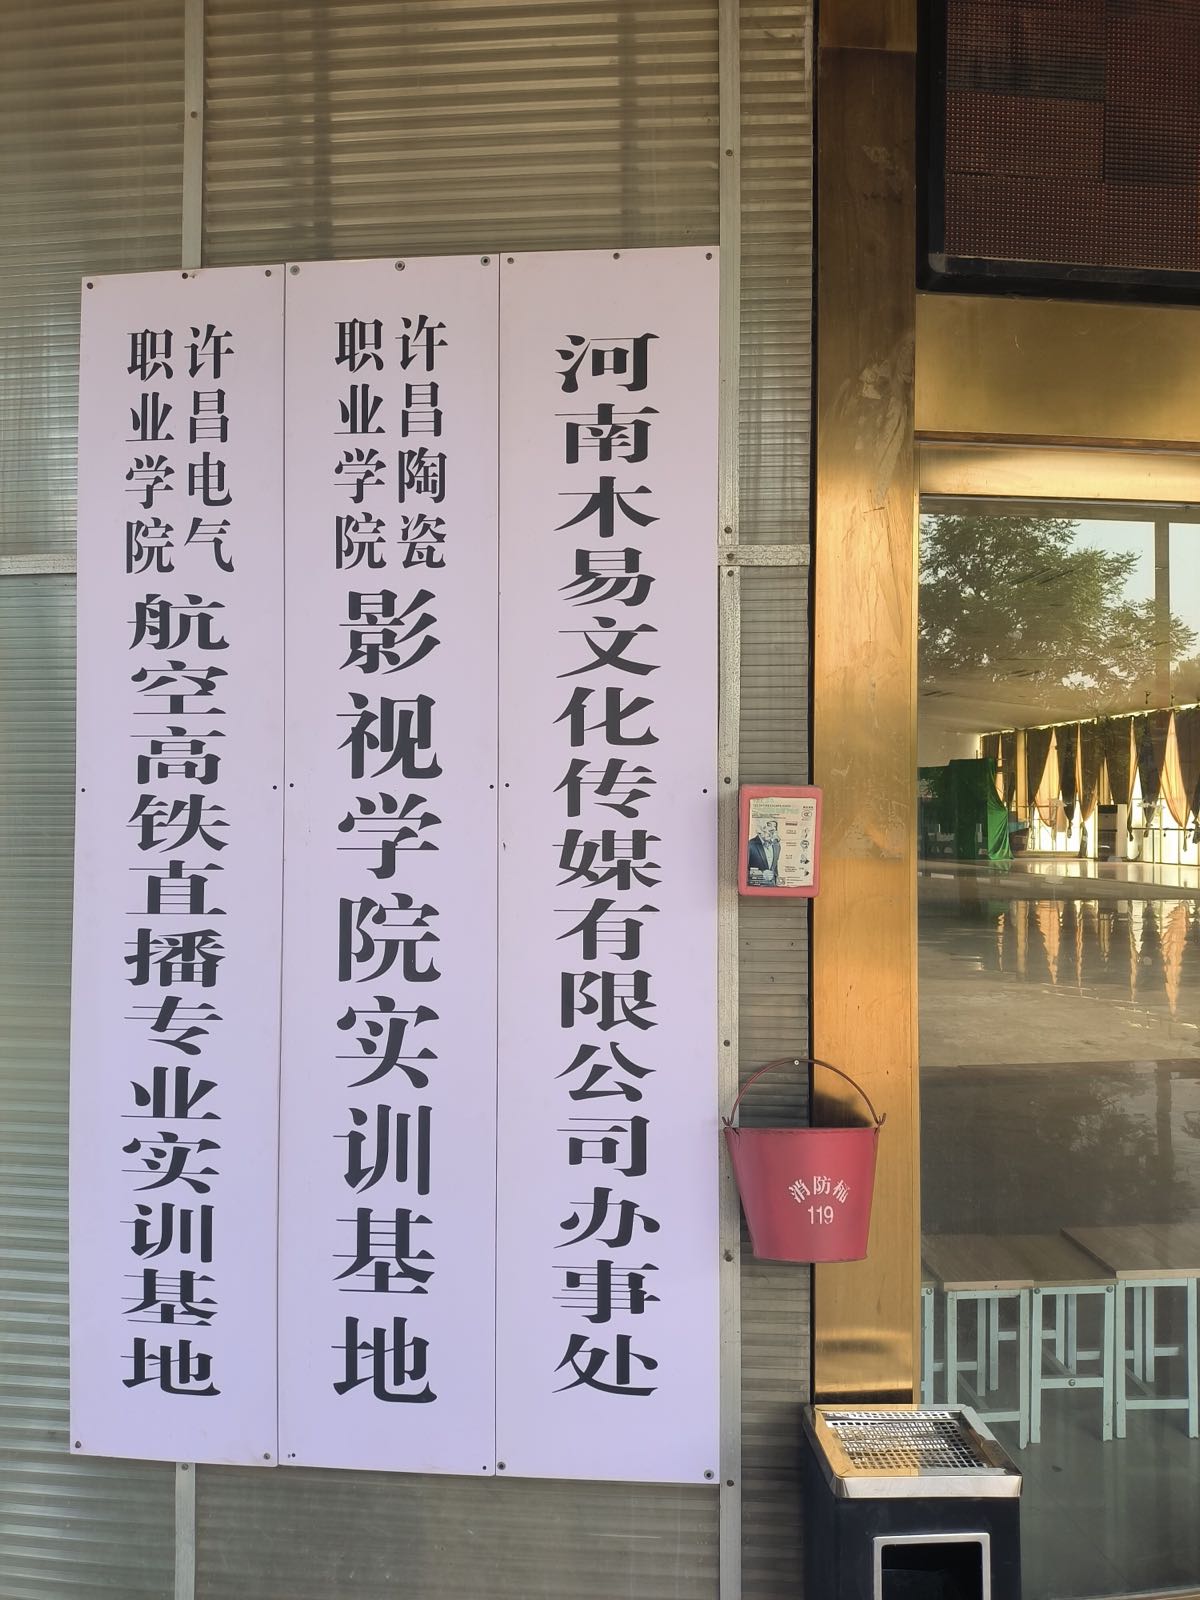 河南木易文化传媒有限公司办事处
许昌陶瓷
职业学院
影视学院实训基地
许昌电气
职业学院
航空高铁直播专业实训基地
消防桶
119